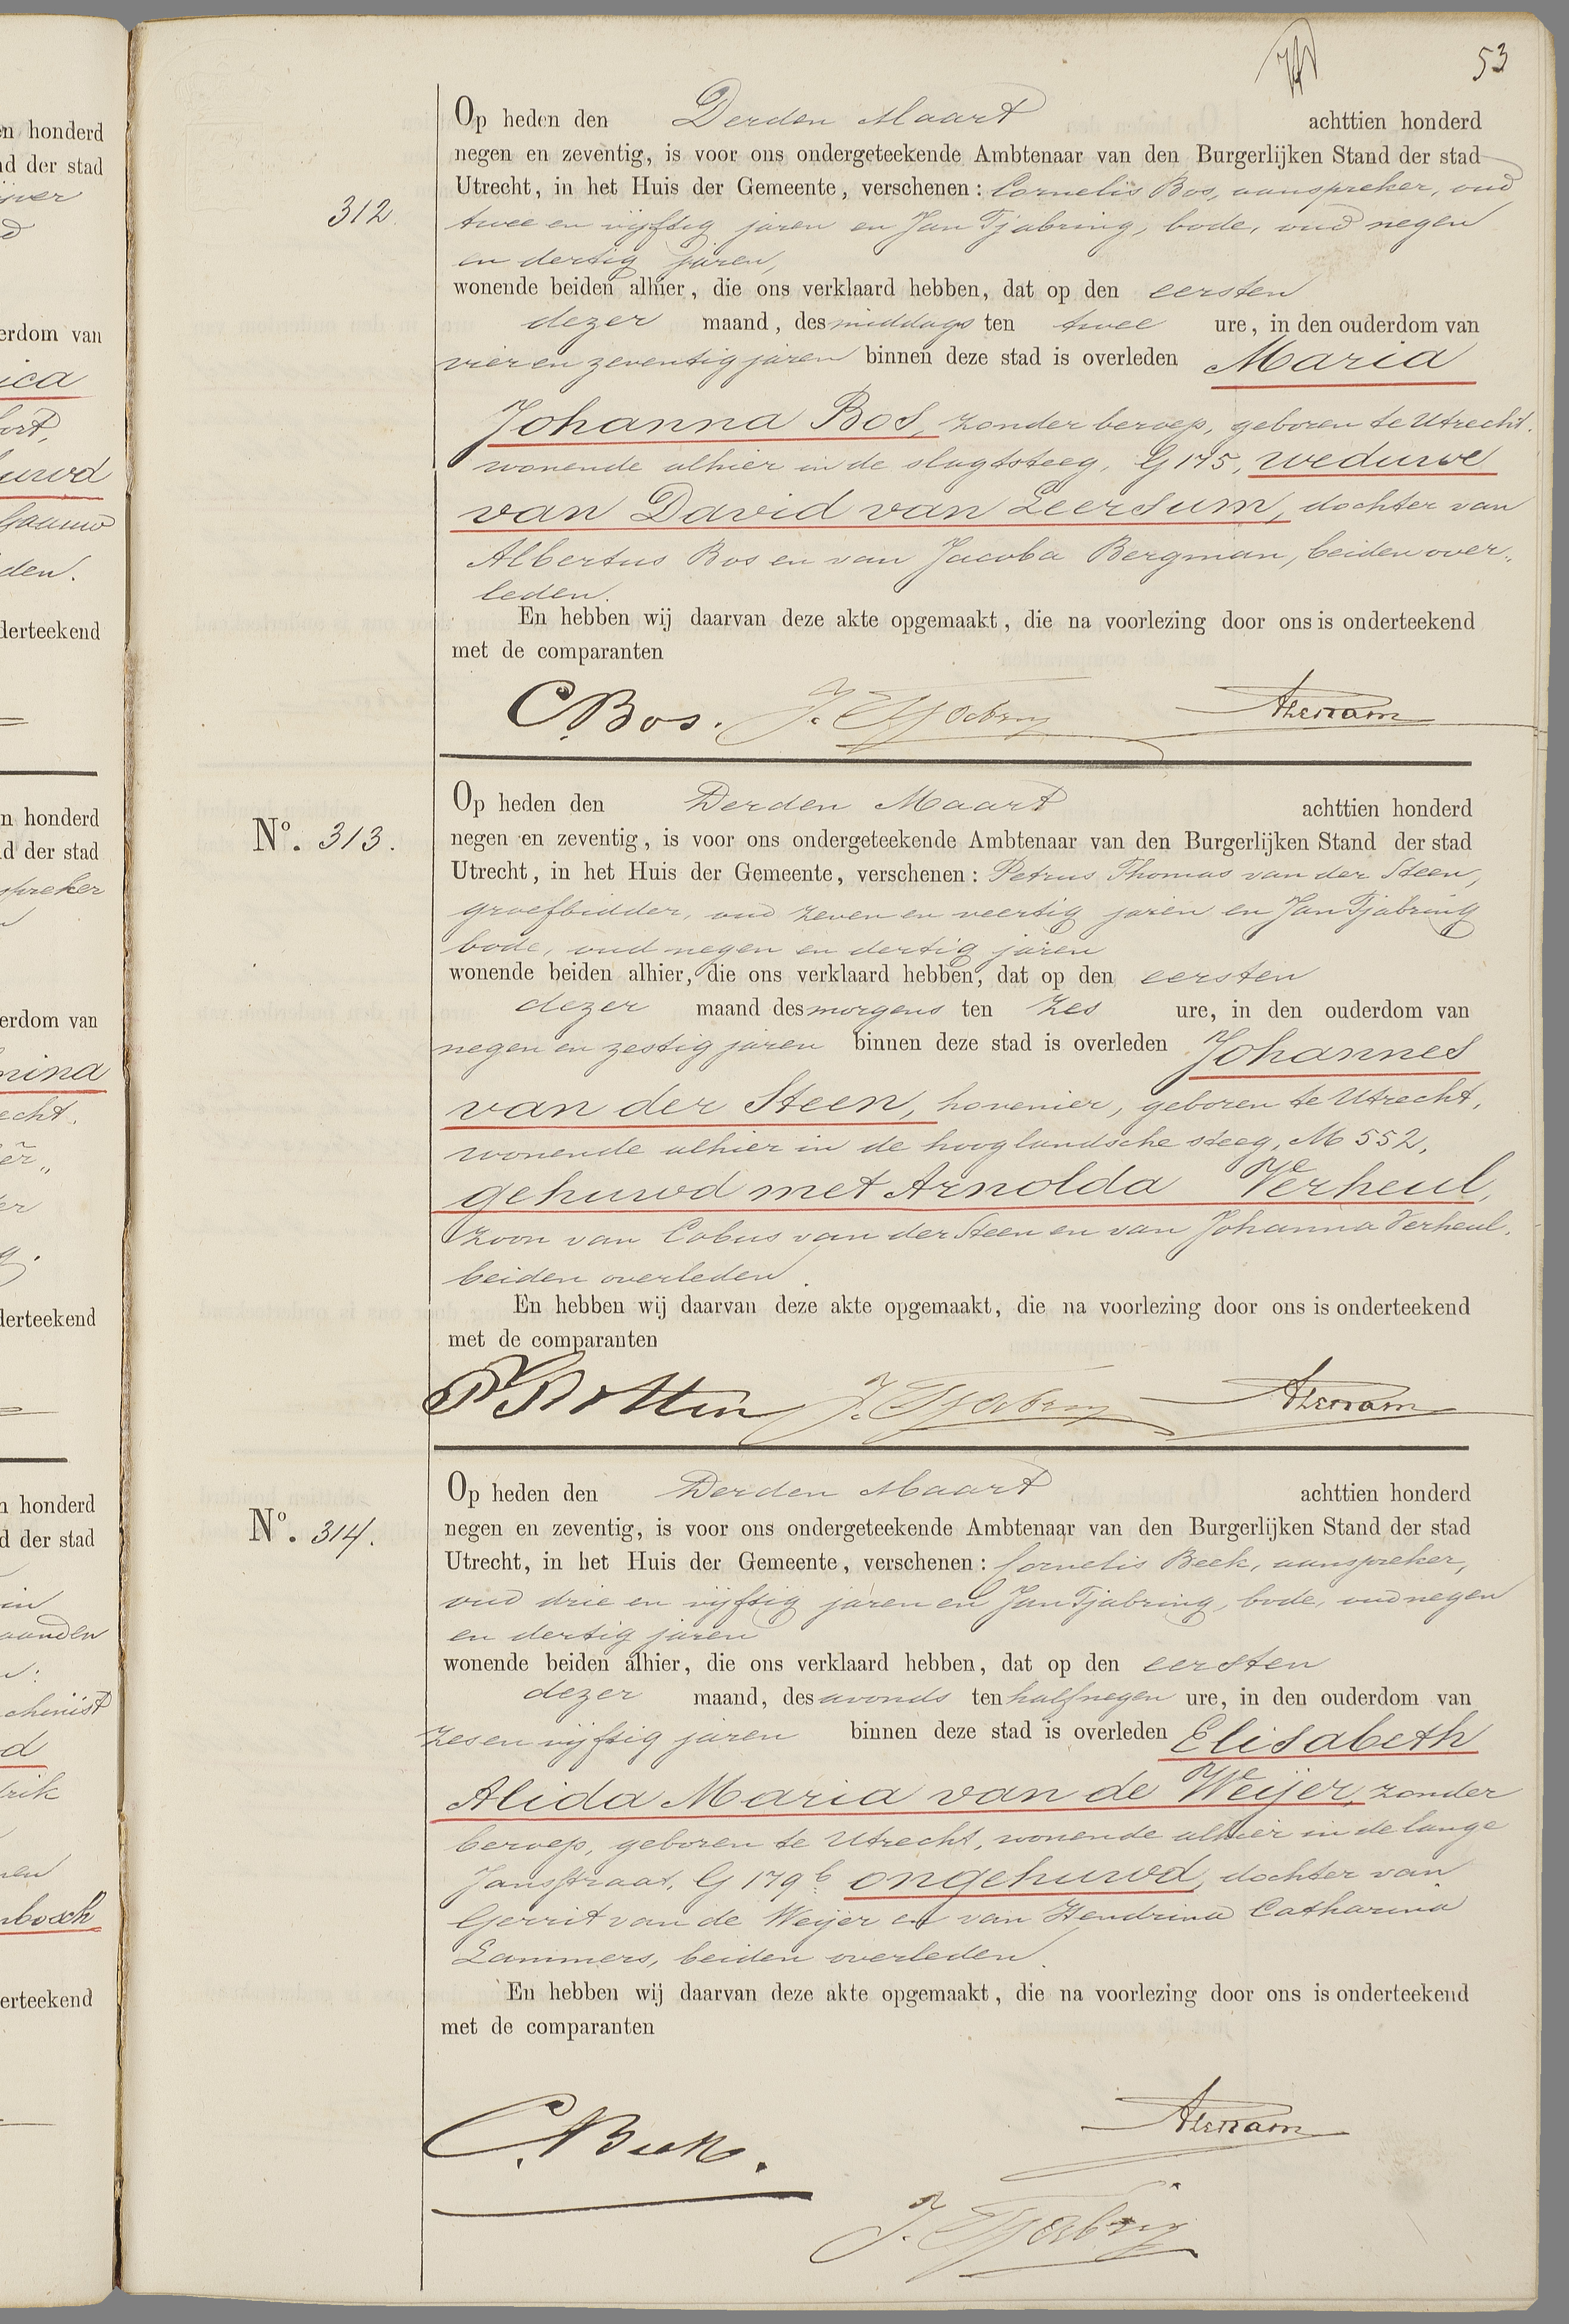 53
Op heden den Derden Maart achttien honderd
negen en zeventig, is voor ons ondergeteekende Ambtenaar van den Burgerlijken Stand der stad
Utrecht, in het Huis der Gemeente, verschenen: Cornelis Bos, aanspreker, oud
312. twee en vijftig jaren en Jan Tjabring, bode, oud negen
en dertig jaren,
wonende beiden alhier, die ons verklaard hebben, dat op den eersten
dezer maand, des middags ten twee ure, in den ouderdom van
vier en zeventig jaren binnen deze stad is overleden Maria
Johanna Bos, zonder beroep, geboren te Utrecht.
wonende alhier in de slagtsteeg, G 175, weduwe
van David van Leersum, dochter van
Albertus Bos en van Jacoba Bergman, beiden over„
leden.
En hebben wij daarvan deze akte opgemaakt, die na voorlezing door ons is onderteekend
met de comparanten
C. Bos. J. Tjabring
Op heden den Derden Maart achttien honderd
No. 313. negen en zeventig, is voor ons ondergeteekende Ambtenaar van den Burgerlijken Stand der stad
Utrecht, in het Huis der Gemeente, verschenen: Petrus Thomas van der Steen,
groefbidder, oud zeven en veertig jaren en Jan Tjabring
bode, oud negen en dertig jaren
wonende beiden alhier, die ons verklaard hebben, dat op den eersten
dezer maand des morgens ten zes ure, in den ouderdom van
negen en zestig jaren binnen deze stad is overleden Johannes
van der Steen, hovenier, geboren te Utrecht,
wonende alhier in de hooglandsche steeg, M 552,
gehuwd met Arnolda Verheul,
zoon van Cobus van der Steen en van Johanna Verheul,
beiden overleden.
En hebben wij daarvan deze akte opgemaakt, die na voorlezing door ons is onderteekend
met de comparanten
J. Tjabring
Op heden den Derden Maart achttien honderd
No. 314. negen en zeventig, is voor ons ondergeteekende Ambtenaar van den Burgerlijken Stand der stad
Utrecht, in het Huis der Gemeente, verschenen: Cornelis Beek, aanspreker,
oud drie en vijftig jaren en Jan Tjabring, bode, oud negen
en dertig jaren
wonende beiden alhier, die ons verklaard hebben, dat op den eersten
dezer maand, des avonds ten half negen ure, in den ouderdom van
zes en vijftig jaren binnen deze stad is overleden Elisabeth
Alida Maria van de Weijer, zonder
beroep, geboren te Utrecht, wonende alhier in de lange
Jansstraat, G 179 b ongehuwd, dochter van
Gerrit van de Weijer en van Hendrina Catharina
Lammers, beiden overleden.
En hebben wij daarvan deze akte opgemaakt, die na voorlezing door ons is onderteekend
met de comparanten
C. Beek.
J. Tjabring